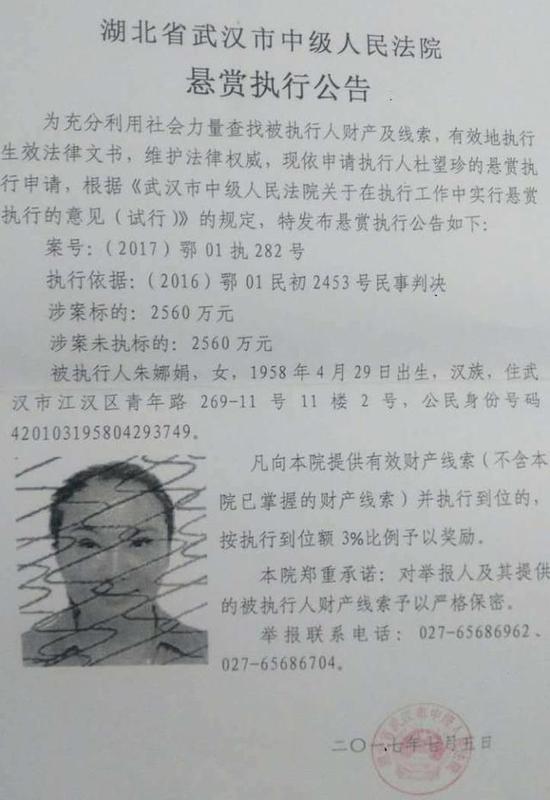 湖北省武汉市中级人民法院
悬赏执行公告
为充分利用社会力量查找被执行人财产及线索，有效地执行
生效法律文书，维护法律权威，现依申请执行人杜望珍的悬赏执
行申请，根据《武汉市中级人民法院关于在执行工作中实行悬赏
执行的意见（试行）》的规定，特发布悬赏执行公告如下：
案号：（2017）鄂 01 执 282 号
执行依据：（2016）鄂 01 民初 2453 号民事判决
涉案标的：2560 万元
涉案未执标的：2560 万元
被执行人朱娜娟，女，1958 年 4 月 29 日出生，汉族，住武
汉市江汉区青年路 269-11 号 11 楼 2 号，公民身份号码
420103195804293749。
凡向本院提供有效财产线索（不含本
院已掌握的财产线索）并执行到位的，
按执行到位额 3%比例予以奖励。
本院郑重承诺：对举报人及其提供
的被执行人财产线索予以严格保密。
举报联系电话：027-65686962、
027-65686704。
二〇一七年七月五日